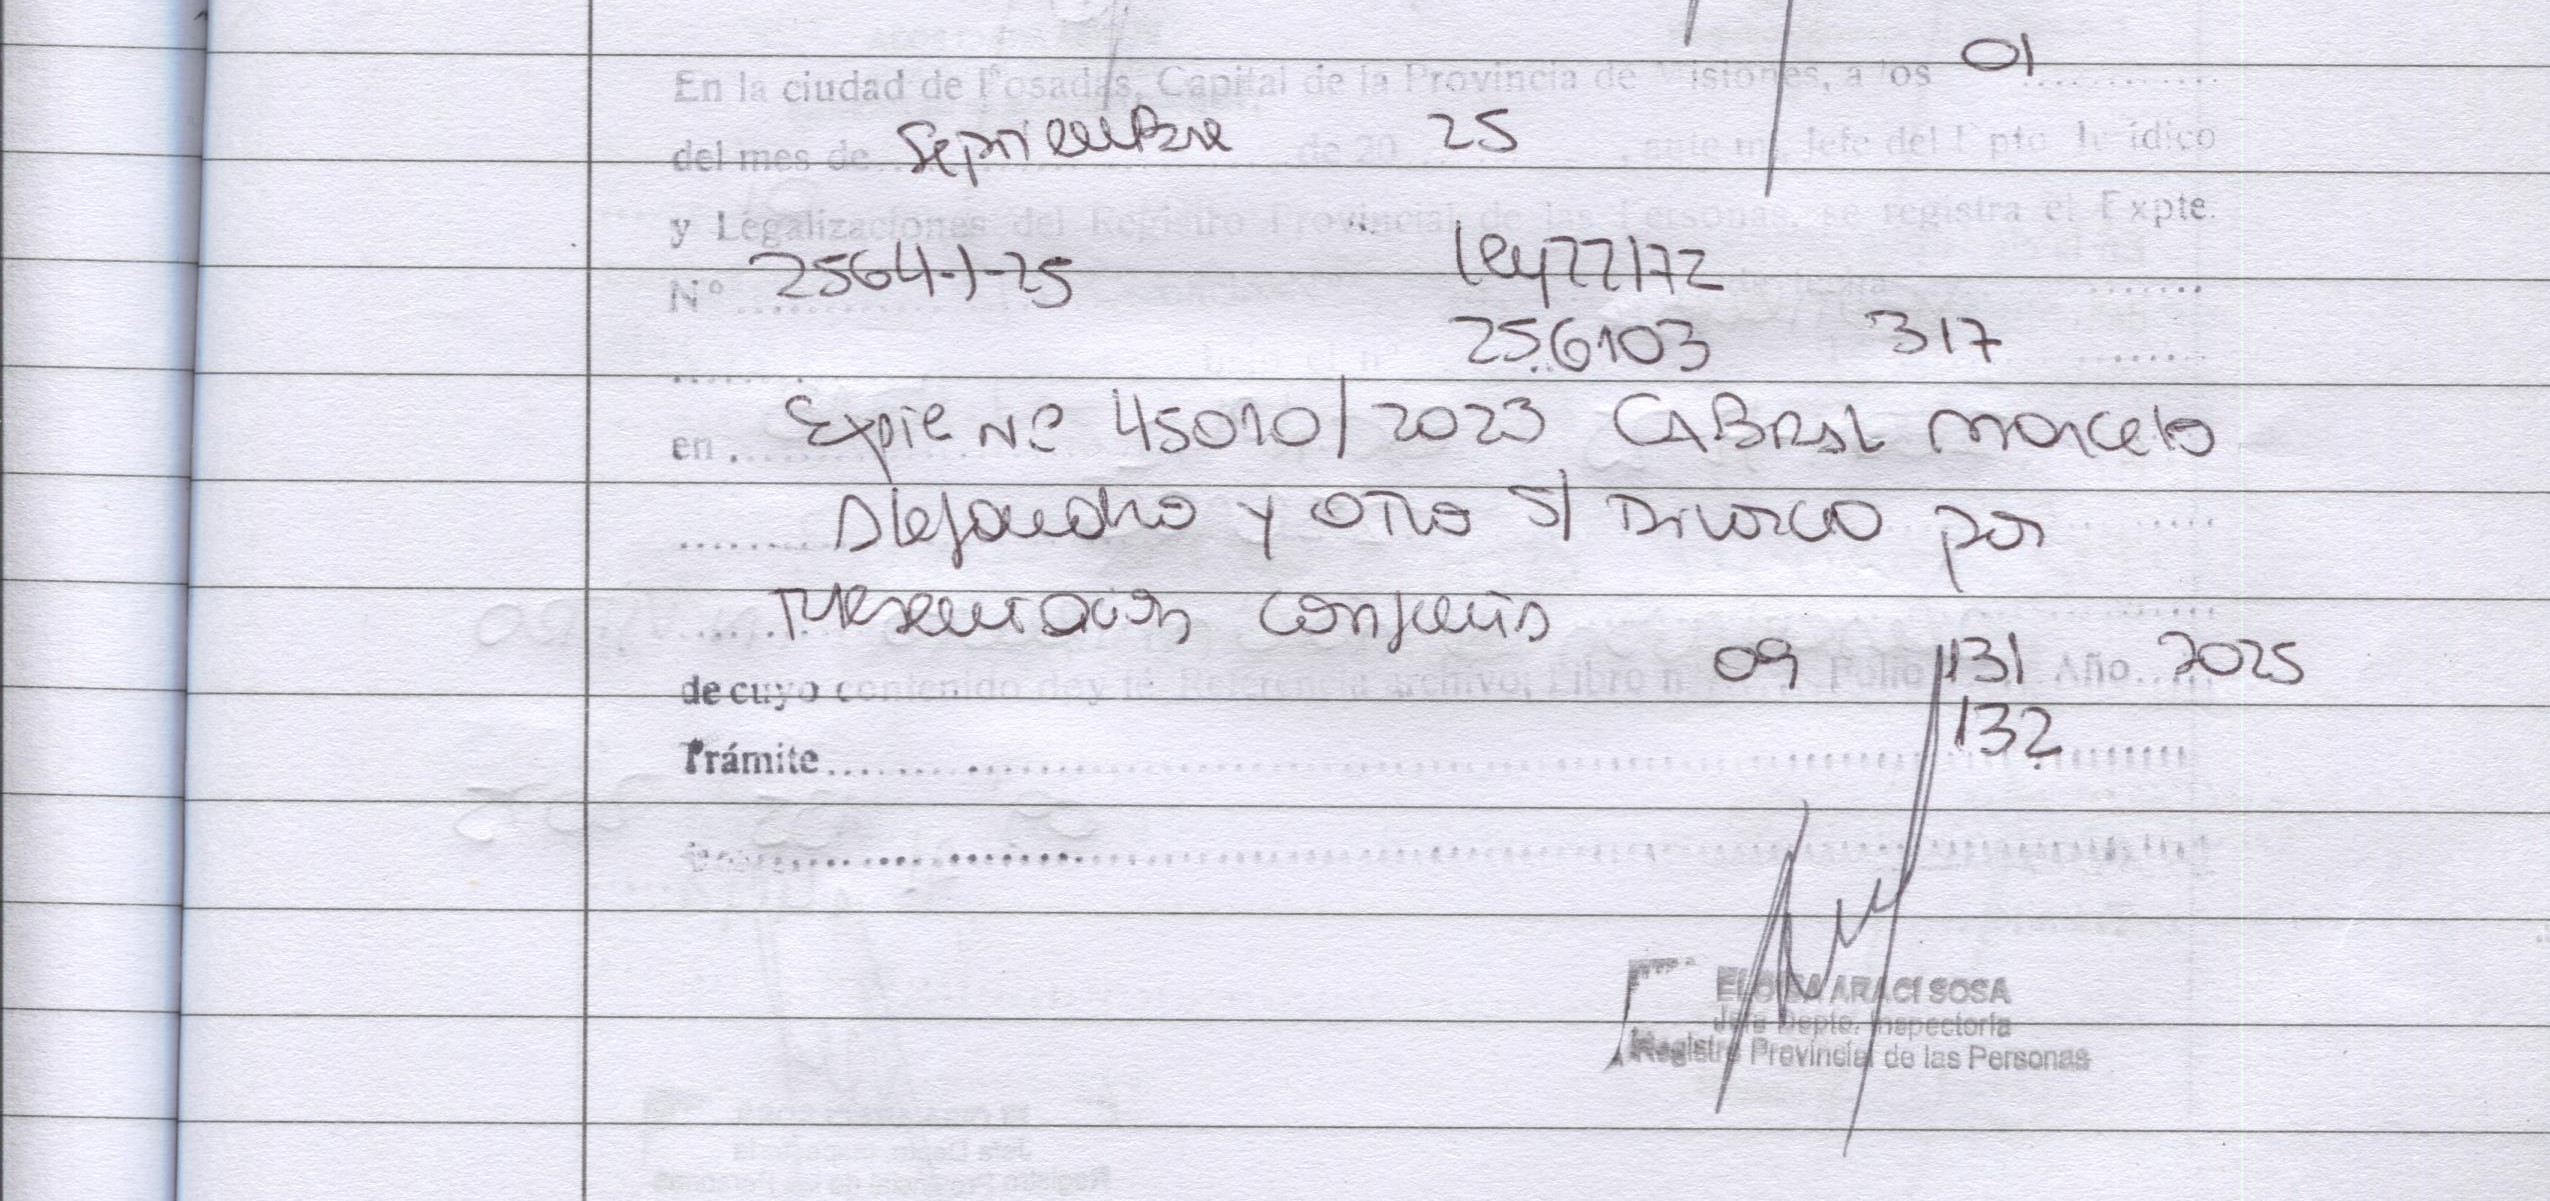 En la ciudad de Posadas, Capital de la Provincia de Misiones, a los 01
del mes de Septiembre de 20 25, ante mi, Jefe del Dpto. Jurídico
y Legalizaciones del Registro Provincial de las Personas, se registra el Expte.
Nº 2564-J-25 Ley 22172
256103 317
en Expte Nº 45010/2023 CABRAL Marcelo
Alejandro y otro S/ Divorcio por
Presentacion conjunta
de cuyo contenido doy fe. Referencia archivo, Libro nº 09 Folio 131 Año 2025
132
Trámite
ELOISA ARACI SOSA
Jefe Depto. Inspectoría
Registro Provincial de las Personas